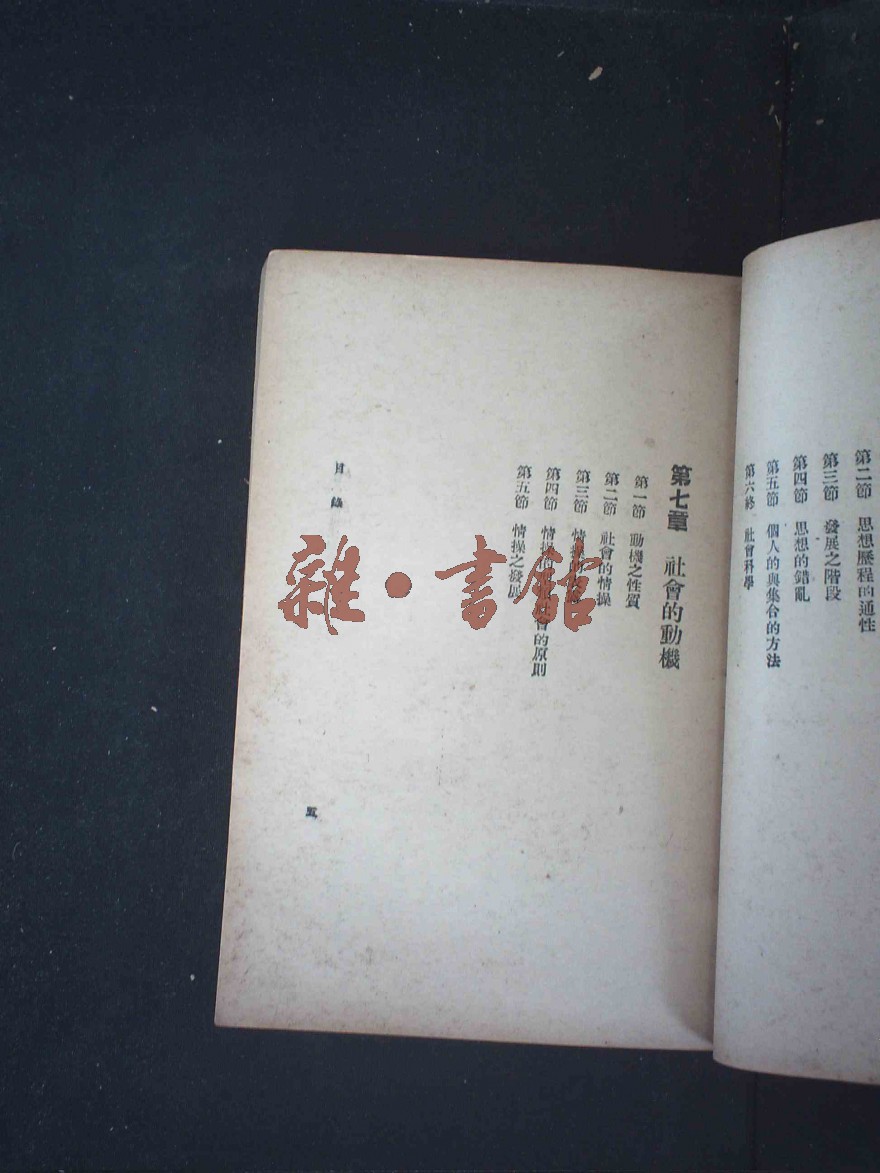 第二節 思想歷程的通性
第三節 發展之階段
第四節 思想的錯亂
第五節 個人的與集合的方法
第六終 社會科學
第七章 社會的動機
第一節 動機之性質
第二節 社會的情操
第三節 情操
第四節 情操 會的原則
第五節 情操之發展
目錄
五
雜·書館